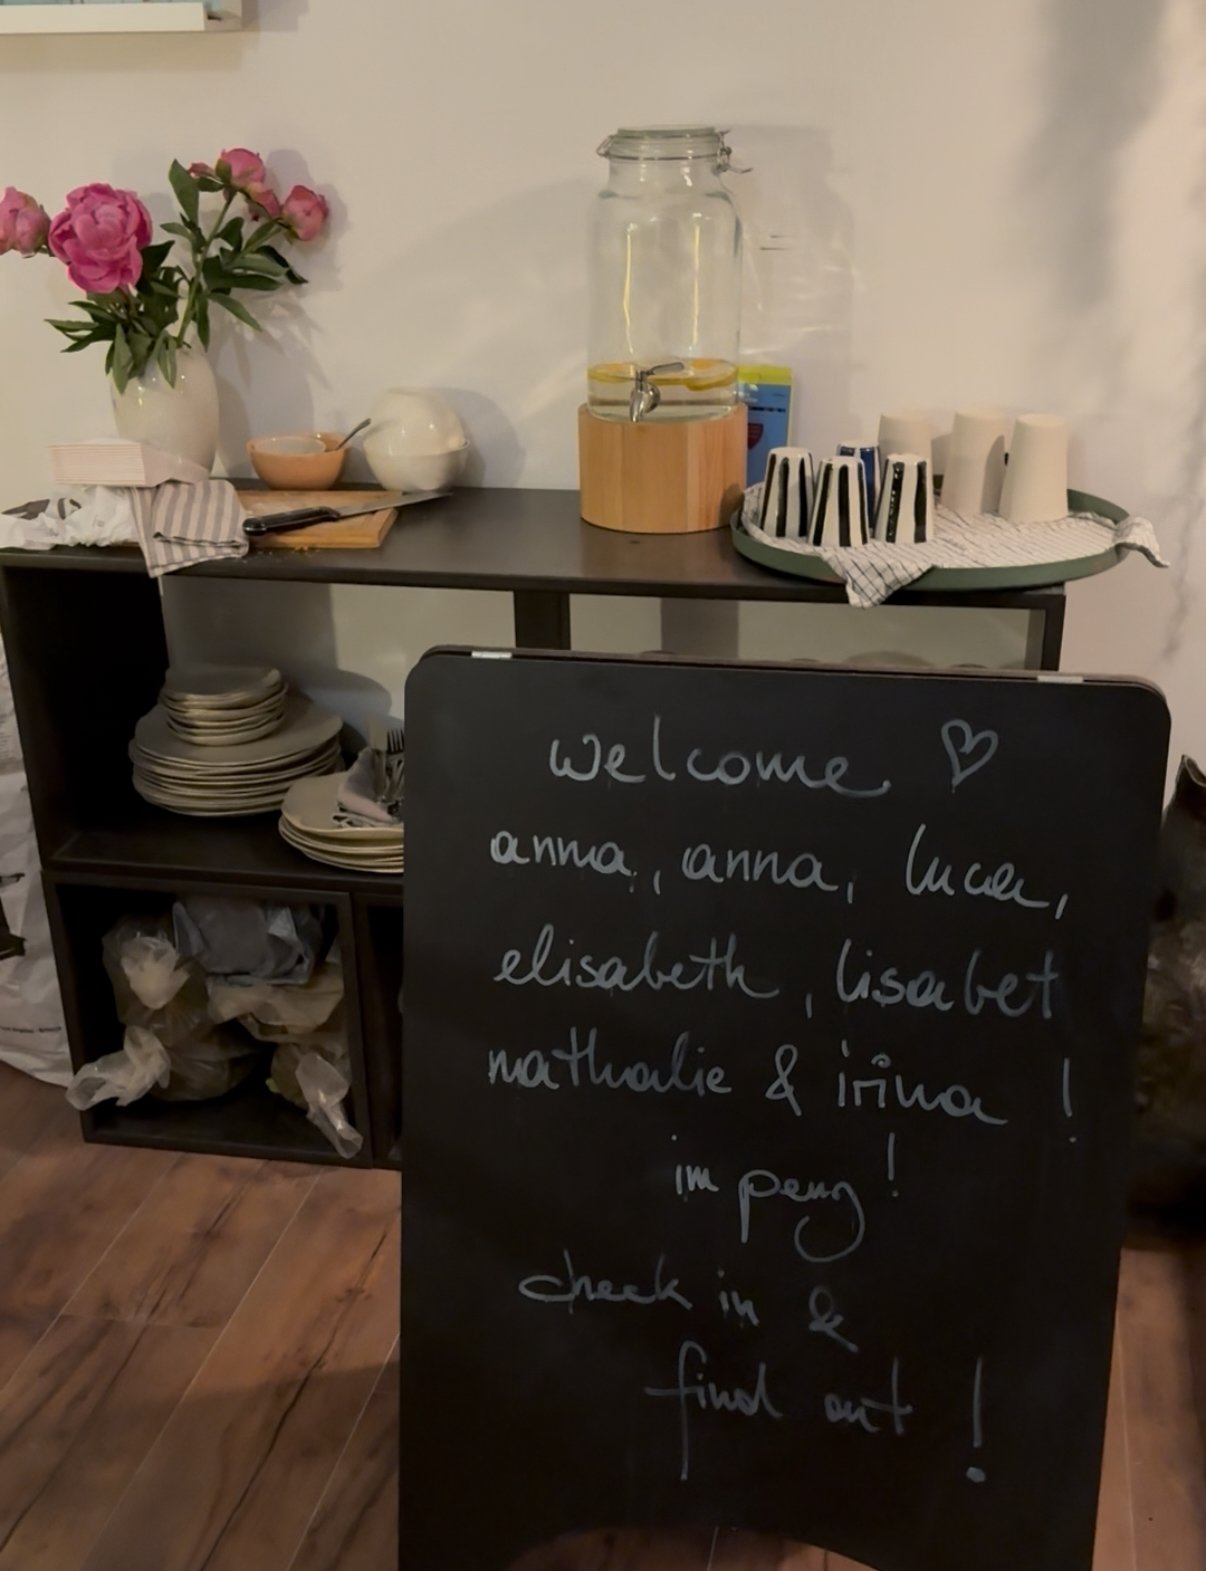 welcome ♡
anna, anna, luca,
elisabeth, lisabet
nathalie & irina !
im peng !
check in &
find out !